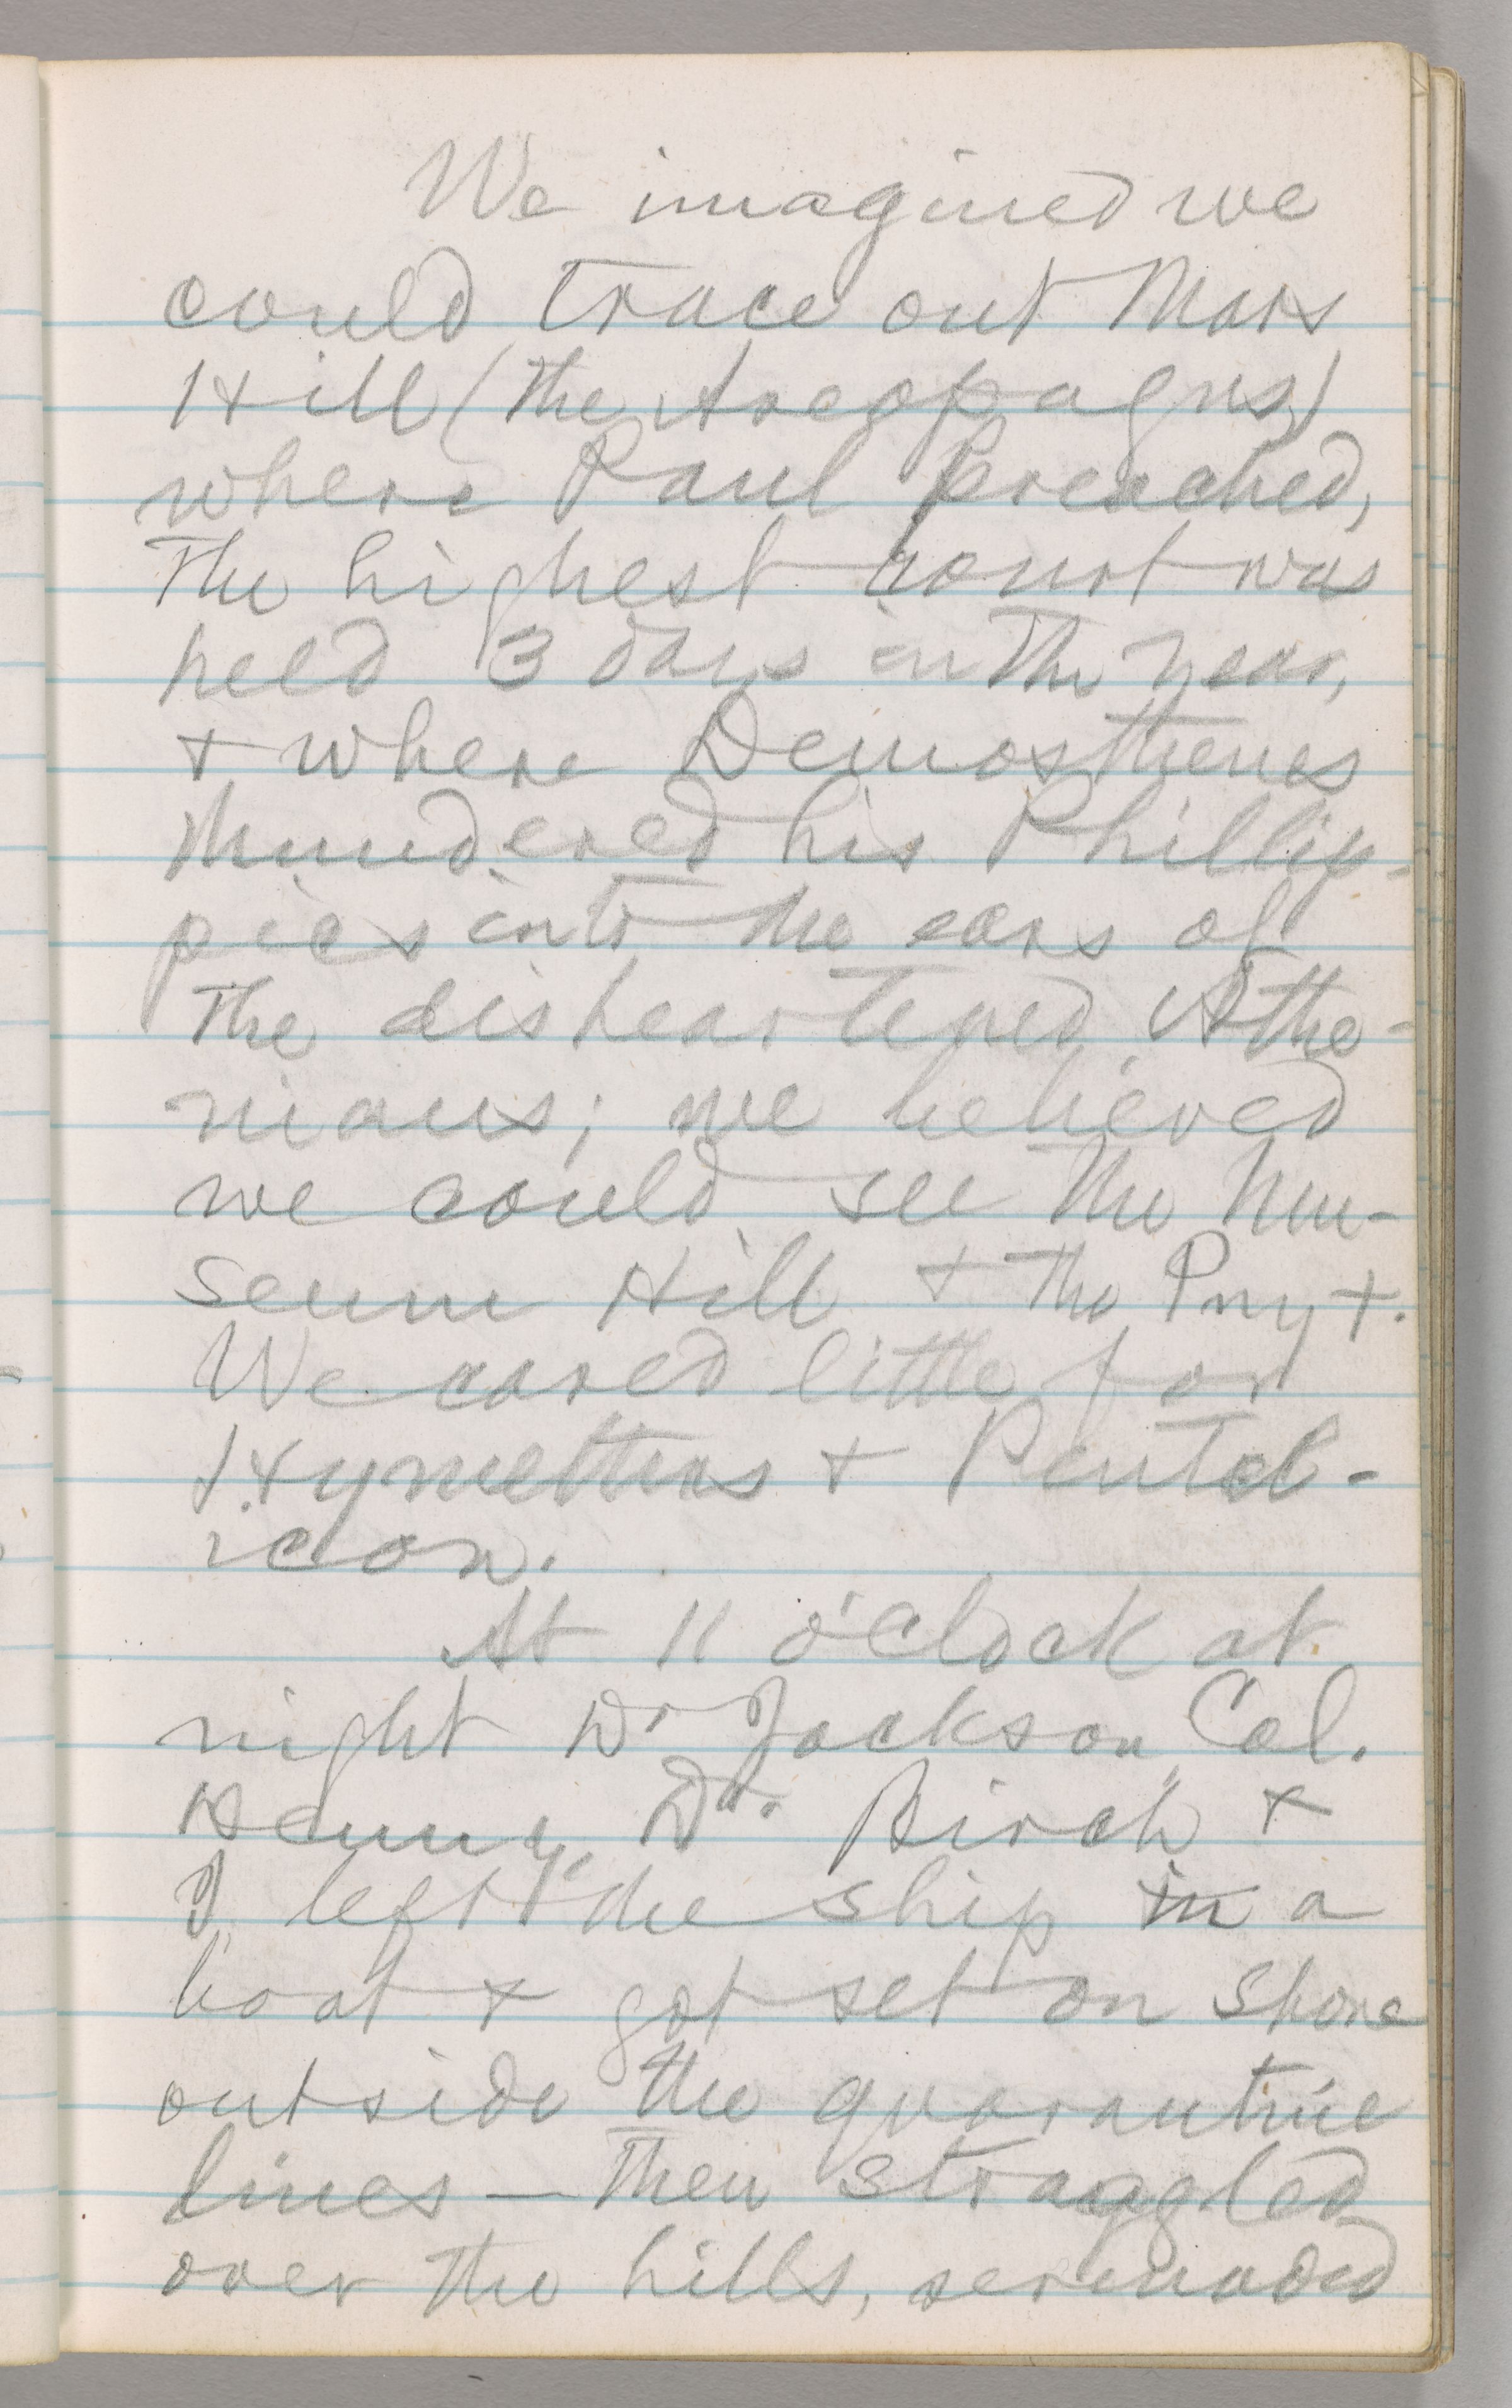 We imagined we
could trace out Mars
Hill (the Areopagus)
where Paul preached,
the highest court was
held 3 days in the year,
& where Demosthenes
thundered his Phillip-
pics into the ears of
the disheartened Athe-
nians; we believed
we could see the Mu-
seum Hill & the Pnyx.
We cared little for
Hymettus & Pentel-
icon.
At 11 o'clock at
night Dr Jackson, Col.
Denny, Dr. Birch &
I left the ship in a
boat & got set on shore
outside the quarantine
lines — then straggled
over the hills, serenaded